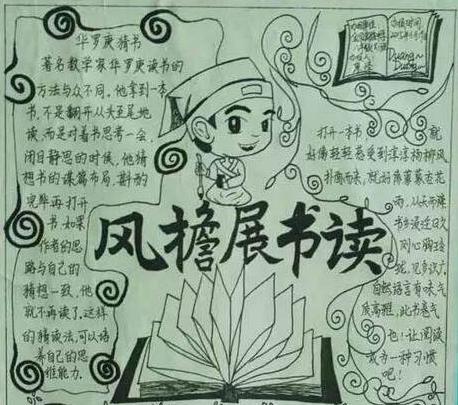 华罗庚猜书
著名数学家华罗庚读书的
方法与众不同,他拿到一本
书,不是翻开从头至尾地
读,而是对着书思考一会,
闭目静思的时候,他猜
想书的谋篇布局,斟酌
完毕再打开
书,如果
作者的思
路与自己的
猜想一致,他
就不再读了,这样
的猜读法,可以培
养自己的思
维能力.
风檐展书读
打开一本书 就
好像轻轻感受到淳淳杨柳风
扑面而来,就好像蒙蒙杏花
雨,从天而降
书乡浸
则心胸
自然语言有味气
质高雅,此书卷气
也!让阅读
成为一种习惯
吧!